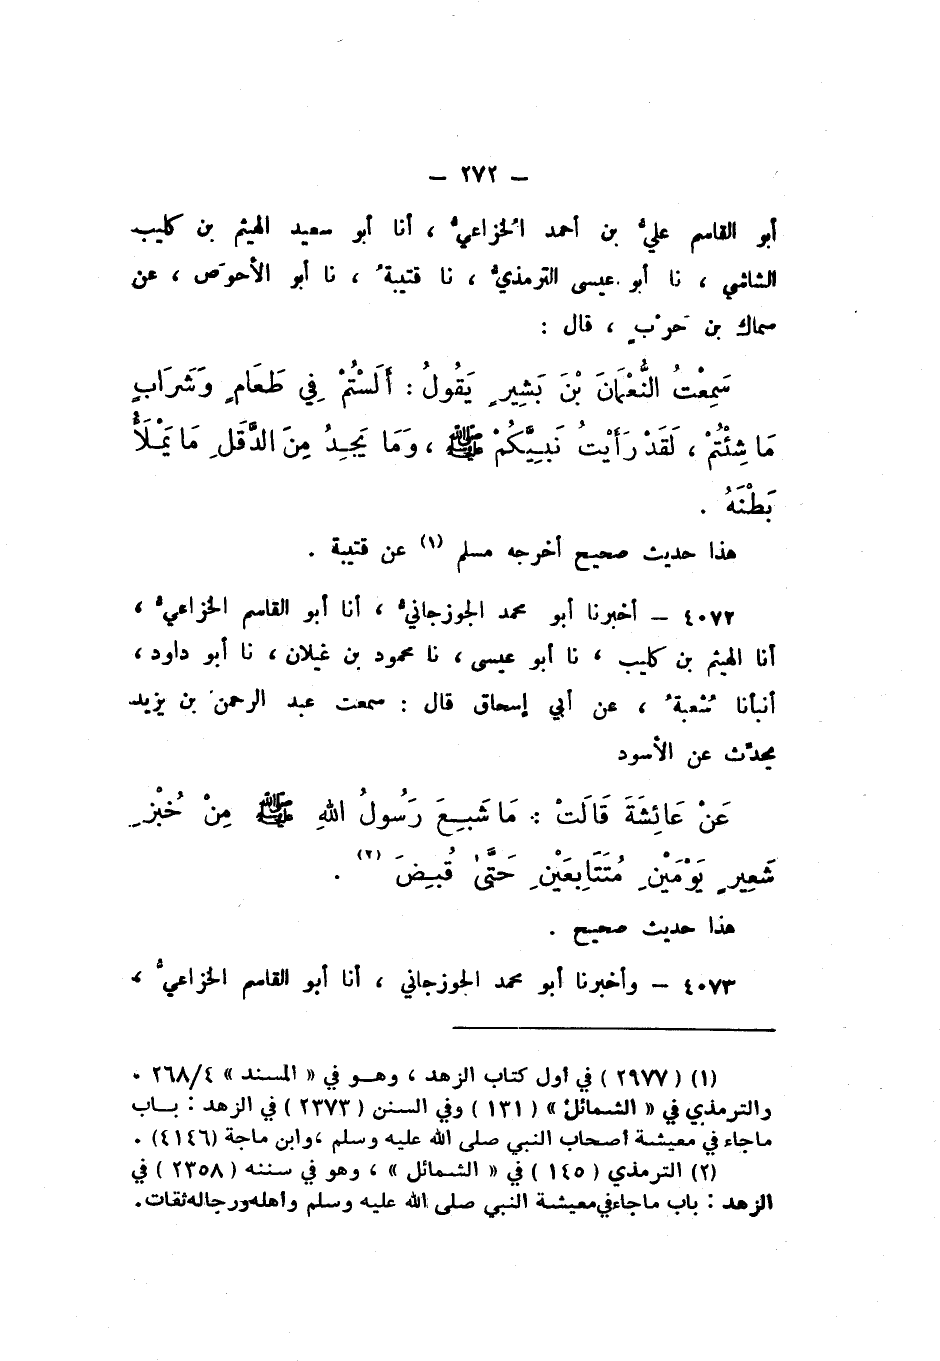 — ٢٧٢ —
أبو القاسم عليُّ بن أحمد الخُزاعيُّ ، أنا أبو سعيد الهيثم بن كليب
الشاشي ، نا أبو عيسى الترمذيُّ ، نا قتيبةُ ، نا أبو الأحوَص ، عن
سماك بن حَرْبٍ ، قال :
سَمِعْتُ النُّعْمَانَ بْنَ بَشِيرٍ يَقُولُ : أَلَسْتُمْ فِي طَعَامٍ وَشَرَابٍ
مَا شِئْتُمْ ، لَقَدْ رَأَيْتُ نَبِيَّكُمْ ﷺ ، وَمَا يَجِدُ مِنَ الدَّقَلِ مَا يَمْلَأُ
بَطْنَهُ .
هذا حديث صحيح أخرجه مسلم (١) عن قتيبة .
٤٠٧٢ — أخبرنا أبو محمد الجوزجانيُّ ، أنا أبو القاسم الخزاعيُّ ،
أنا الهيثم بن كليب ، نا أبو عيسى ، نا محمود بن غيلان ، نا أبو داود ،
أنبأنا شُعبةُ ، عن أبي إسحاق قال : سمعت عبد الرحمن بن يزيد
يحدّث عن الأسود
عَنْ عَائِشَةَ قَالَتْ : مَا شَبِعَ رَسُولُ اللهِ ﷺ مِنْ خُبْزِ
شَعِيرٍ يَوْمَيْنِ مُتَتَابِعَيْنِ حَتَّىٰ قُبِضَ (٢) .
هذا حديث صحيح .
٤٠٧٣ — وأخبرنا أبو محمد الجوزجاني ، أنا أبو القاسم الخزاعيُّ ،
(١) ( ٢٩٧٧ ) في أول كتاب الزهد ، وهــو في « المسند » ٢٦٨/٤ .
والترمذي في « الشمائل » ( ١٣١ ) وفي السنن ( ٢٣٧٣ ) في الزهد : بــاب
ماجاء في معيشة أصحاب النبي صلى الله عليه وسلم ،وابن ماجة (٤١٤٦) .
(٢) الترمذي ( ١٤٥ ) في « الشمائل » ، وهو في سننه ( ٢٣٥٨ ) في
الزهد : باب ماجاء في معيشة النبي صلى الله عليه وسلم وأهله ورجاله ثقات .